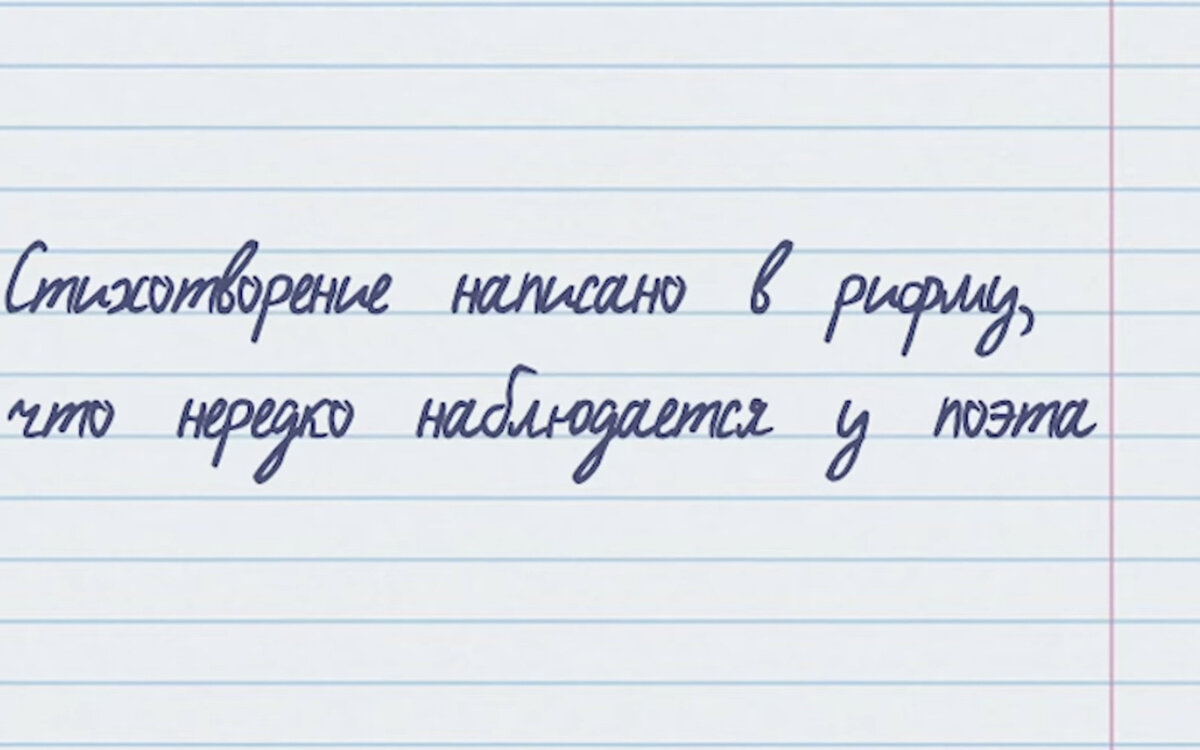 Стихотворение написано в рифму,
что нередко наблюдается у поэта